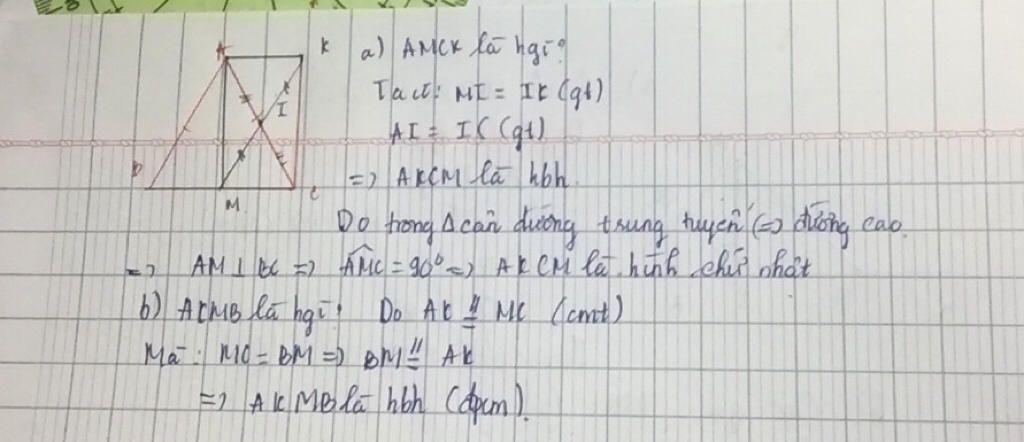 A
K
I
B
M
C
a) AMCK là hgì?
Ta có: MI = IK (gt)
AI = IC (gt)
=> AKCM là hbh.
Do trong Δ cân đường trung tuyến <=> đường cao.
=> AM ⊥ BC => AMC = 90° => AKCM là hình chữ nhật
b) AKMB là hgì? Do AK // = MC (cmt)
Mà: MC = BM => BM // = AK
=> AKMB là hbh (đpcm).